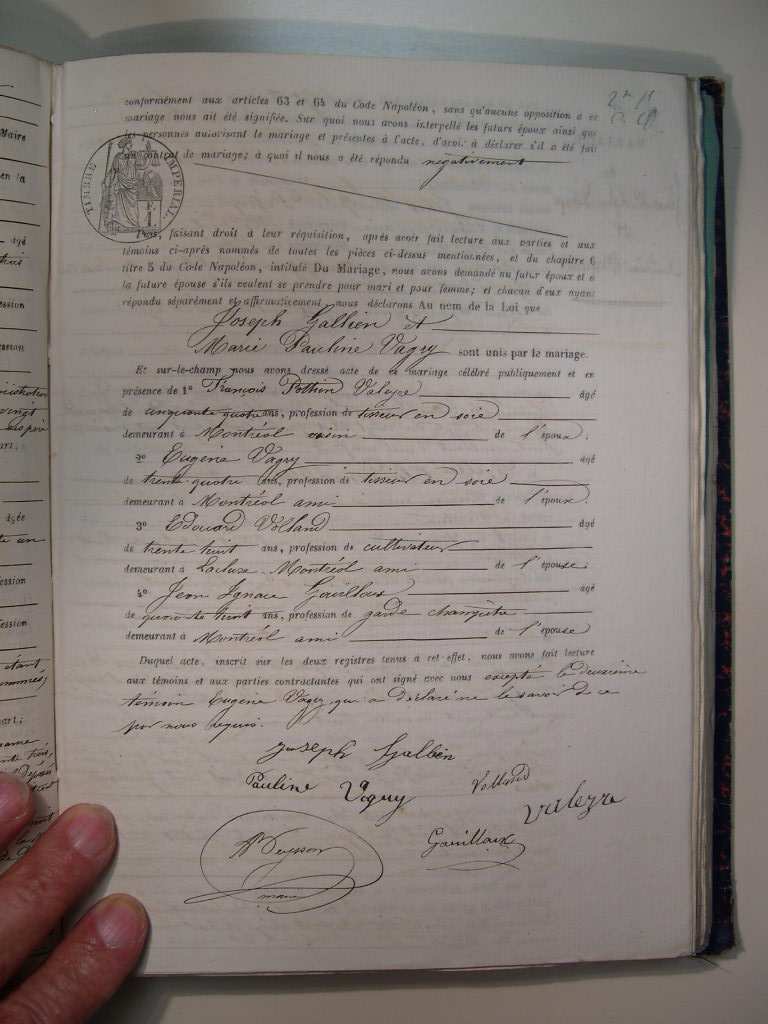 conformément aux articles 63 et 64 du Code Napoléon, sans qu'aucune opposition a ce
mariage nous ait été signifiée. Sur quoi nous avons interpellé les futurs époux ainsi que
les personnes autorisant le mariage et présentes à l'acte, d'avoir à déclarer s'il a été fait
un contrat de mariage; à quoi il nous a été répondu négativement
TIMBRE IMPÉRIAL
Puis, faisant droit à leur réquisition, après avoir fait lecture aux parties et aux
témoins ci-après nommés de toutes les pièces ci-dessus mentionnées, et du chapitre 6
titre 5 du Code Napoléon, intitulé Du Mariage, nous avons demandé au futur époux et à
la future épouse s'ils veulent se prendre pour mari et pour femme; et chacun d'eux ayant
répondu séparément et affirmativement, nous déclarons Au nom de la Loi que
Joseph Gallien et
Marie Pauline Vagry sont unis par le mariage.
Et sur-le-champ nous avons dressé acte de ce mariage célébré publiquement et en
présence de 1º François Pothin Valeyre âgé
de cinquante quatre ans, profession de tisseur en soie
demeurant à Montréol voisin de l'époux.
2º Eugène Vagry âgé
de trente quatre ans, profession de tisseur en soie
demeurant à Montréol ami de l'époux.
3º Edouard Volland âgé
de trente huit ans, profession de cultivateur
demeurant à Montréol ami de l'épouse.
4º Jean Ignace Gouilloux âgé
de quarante huit ans, profession de garde champêtre
demeurant à Montréol ami de l'épouse
Duquel acte, inscrit sur les deux registres tenus à cet effet, nous avons fait lecture
aux témoins et aux parties contractantes qui ont signé avec nous excepté le deuxième
témoin Eugène Vagry qui a déclaré ne le savoir de ce
par nous requis.
Joseph Gallien
Pauline Vagry Volland
Valeyre
Gouilloux
maire